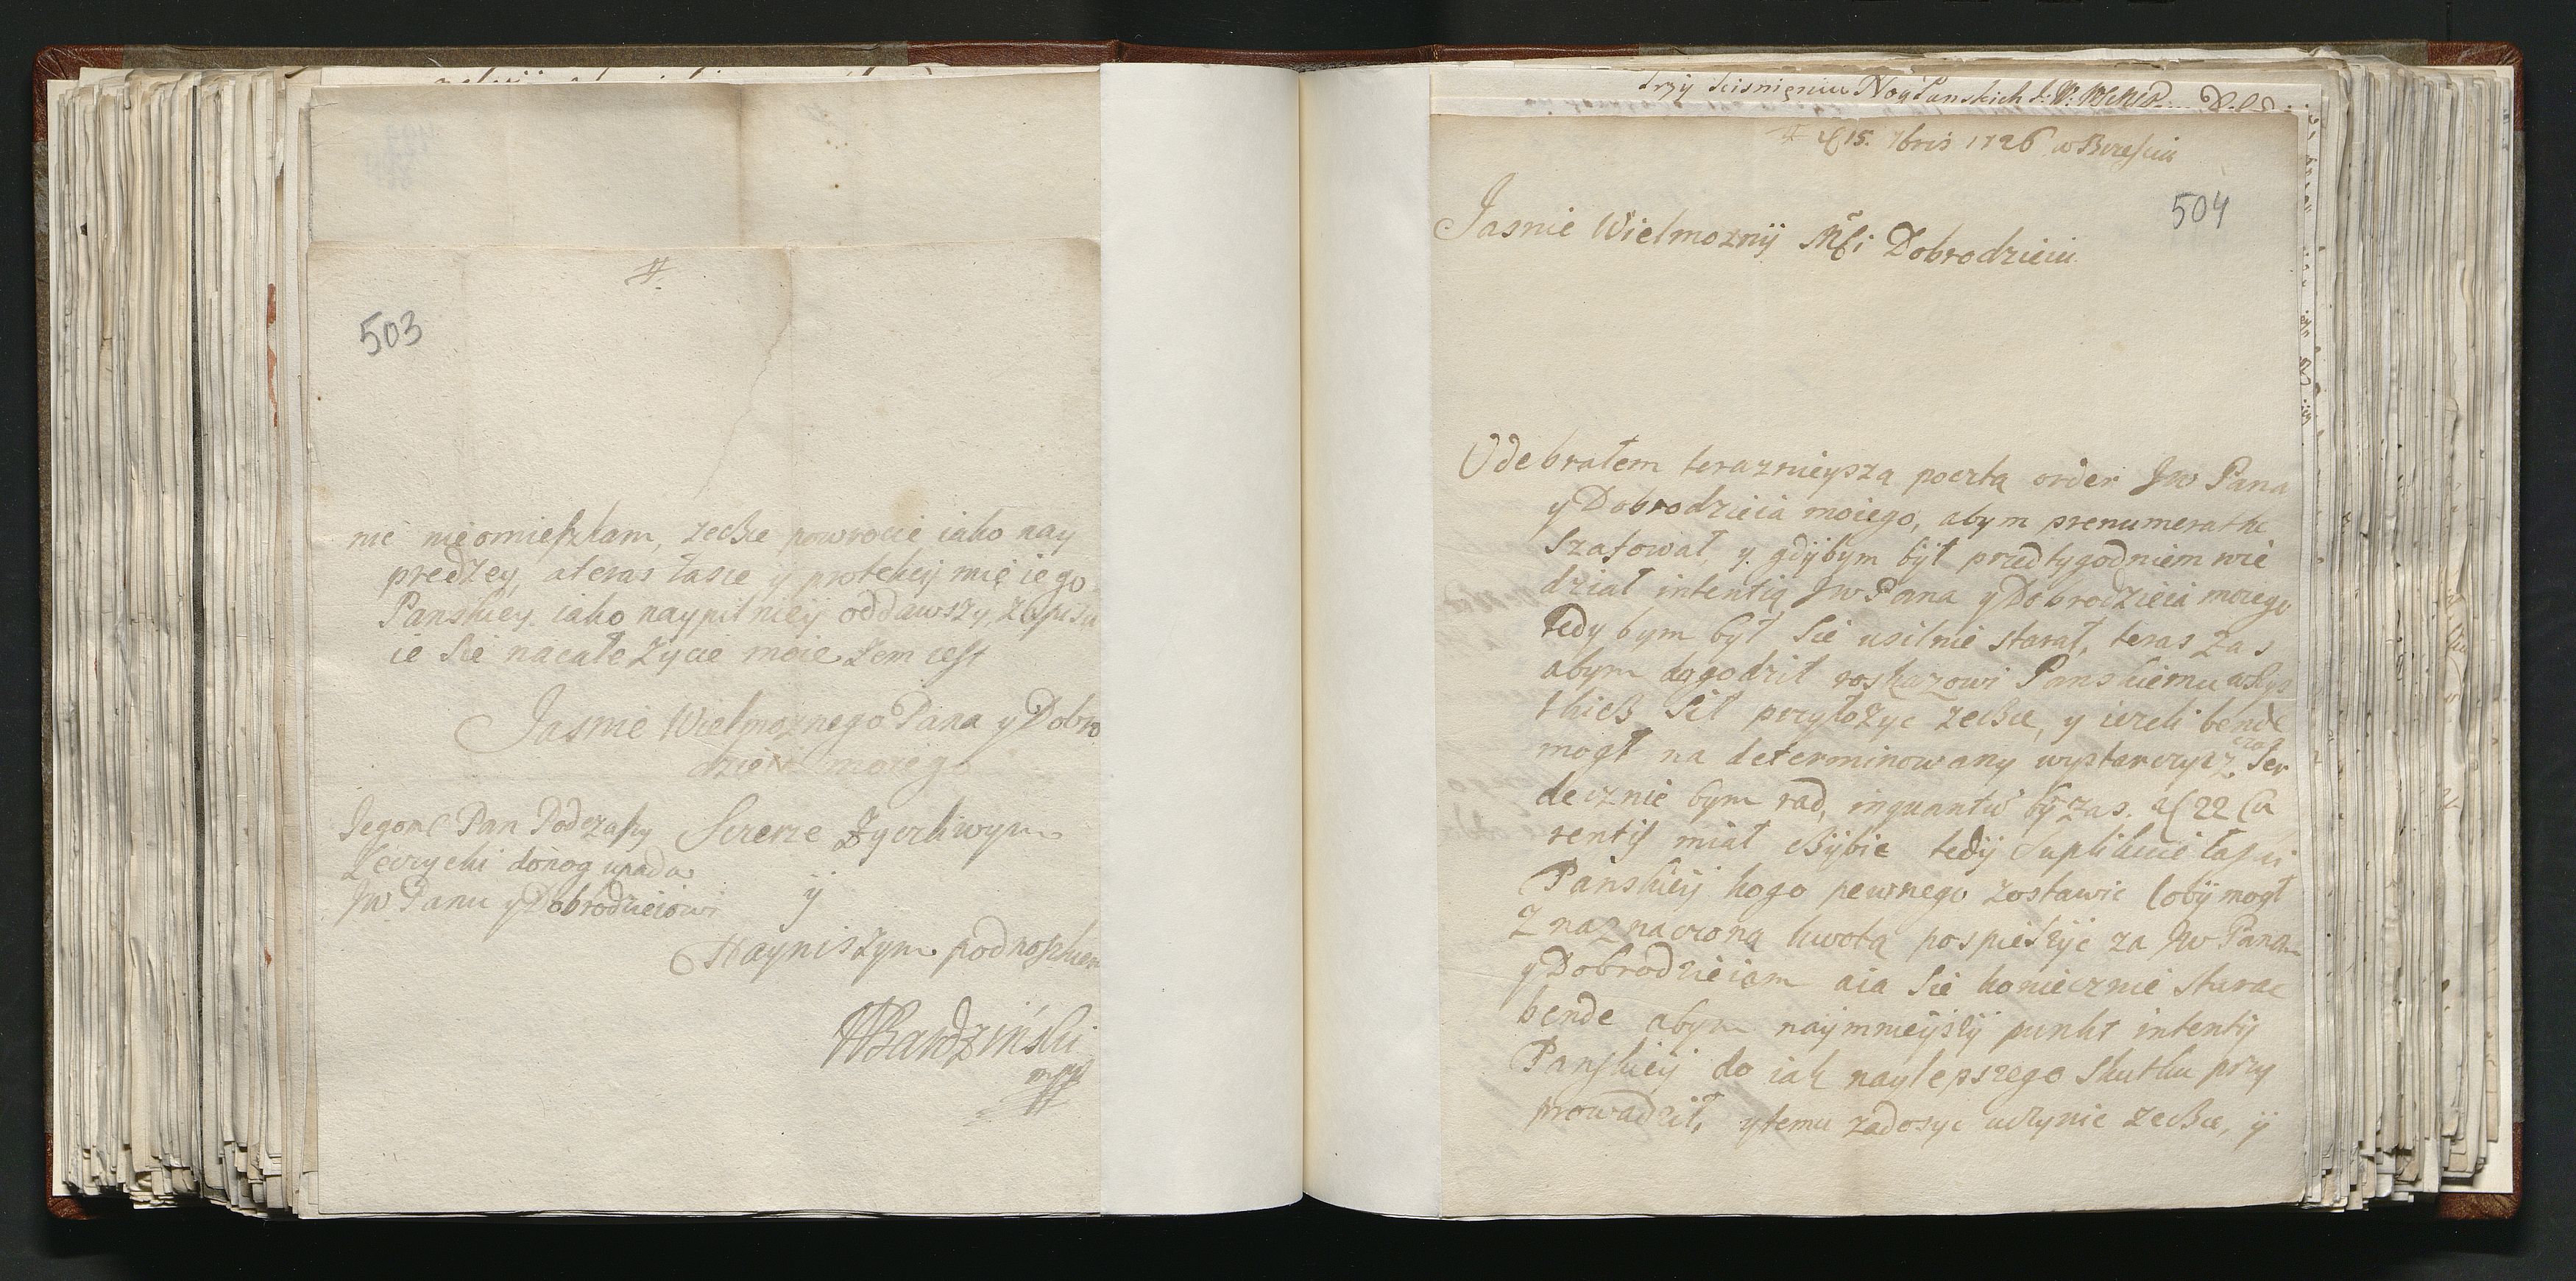 503
#
nie nieomieszkam, zechce powrocic iako nay
predzey, ateras łasce y protekcij mię iego
Panskiey iako naypilnieij oddawszy, zapisu
ie sie nacałe Zycie moie Zem iest
Jasnie Wielmoznego Pana y Dobro
dzieia moiego
Jegomć Pan Podczaszy
Zewrycki donog upada
Jw Panu y Dobrodzieiowi
Szcerze Zyczliwym
ij
Nayniszym podnoszkiem
WBardziński
mpp
Przy scisnieniu Nog Panskich
# d 15. 7bris 1726 w Brzesciu
504
Jasnie Wielmoznij Mći Dobrodzieiu
Odebrałem teraznieyszą pocztą order Jw Pana
y Dobrodzieia moiego, abym prenumeratke
szafował, y gdijbym bijł przedtygodniem wie
dział intentią Jw Pana y Dobrodzieia moiego
tedy bym był sie usilnie starał, teras zas
abym dogodził roskazowi Panskiemu wszys
tkich sił przyłozyc zechce, y iezeli bende
mogł na determinowany wystarczyc czas Ser
decznie bym rad, inquantu by zas. ad 22 Cu
rentis miał chijbic tedij suplikuie łasci
Panskieij kogo pewnego zostawic cobij mogł
Z naznaczoną kwotą pospieszijc za Jw Panem
y Dobrodzieiam aia sie koniecznie starac
bende abym naijmnieijszij punkt intentij
Panskieij do iak naylepszego skutku przy
prowadził, ytemu zadosyc uczynic zechce, ij